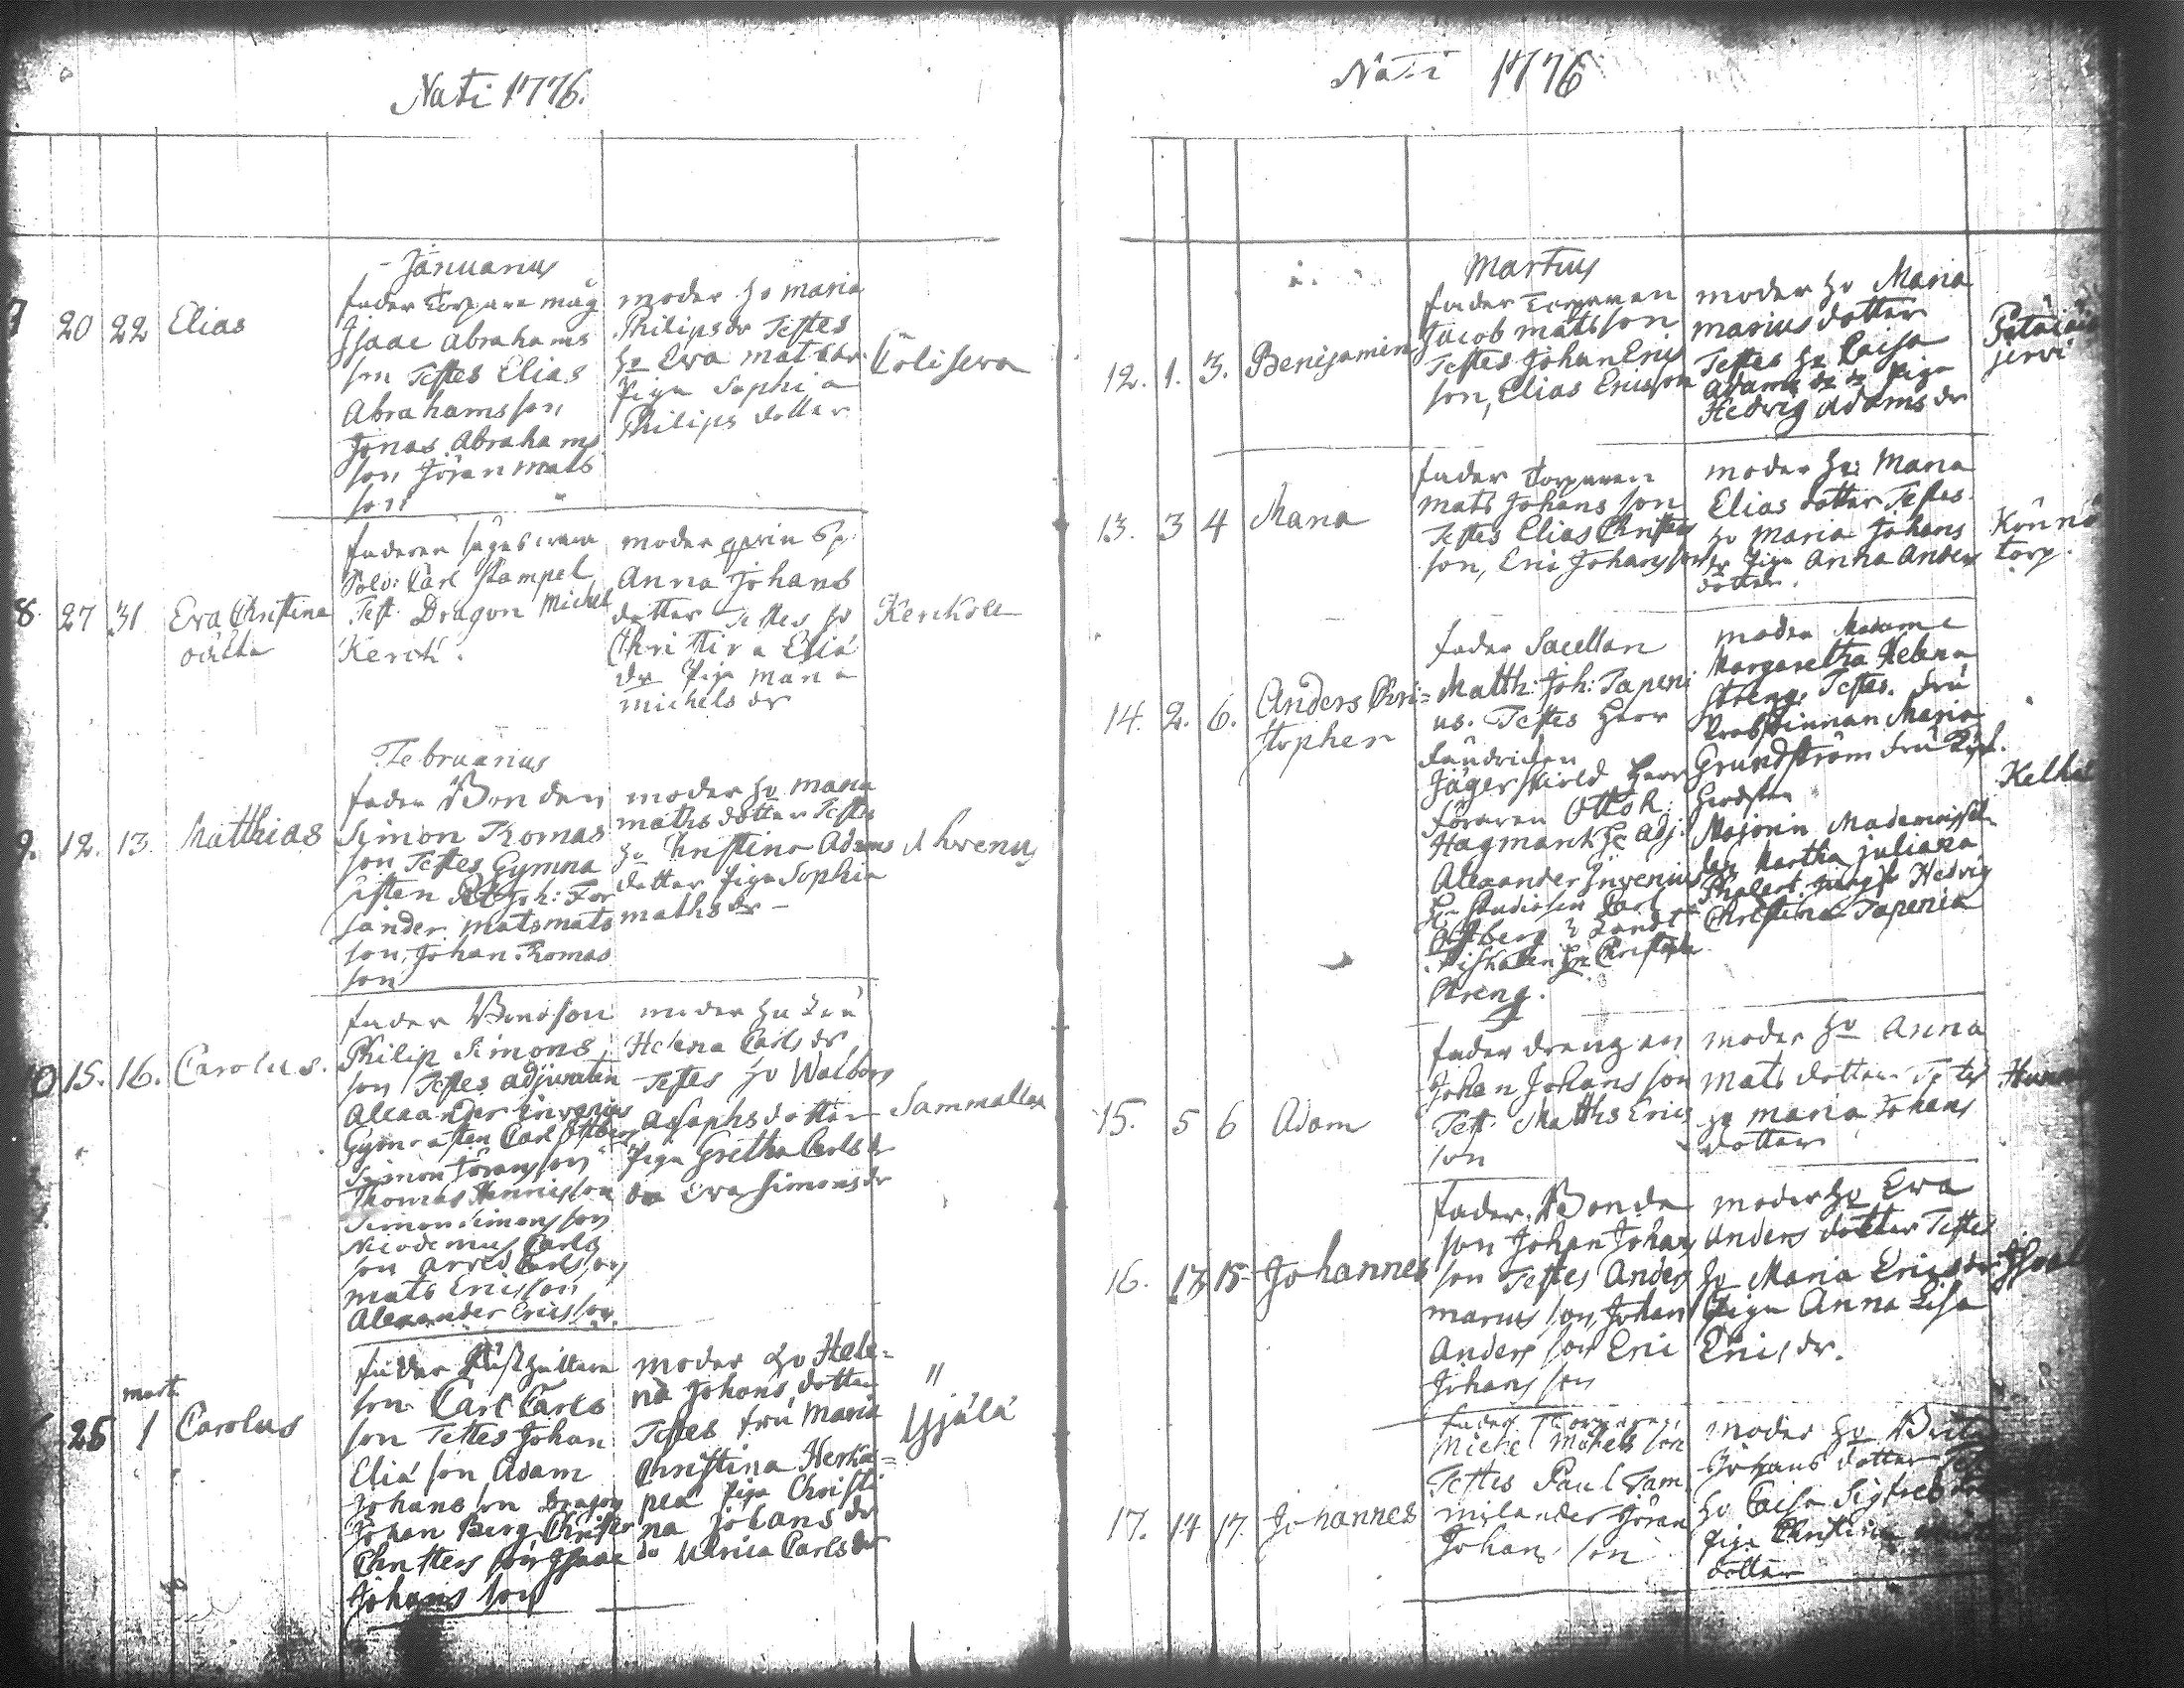 Nati 1776.
Januarius
20 22 Elias
fader Torpare måg
Isaac Abrahams
son Testes Elias
Abrahamsson
Jonas Abrahams
son Jöran Mats
son
moder H: Maria
Philips dr Testes
H: Eva Mats dr
Piga Sophia
Philips dotter
8. 27 31 Eva Christina
Sold: Carl Stampel
Test. Dragon Michel
Kerck.
moder
Anna Johans
dotter Testes H:
Christina Eliæ
dr Piga Maria
Michels dr
Kerckola
Februarius
9. 12. 13. Matthias
fader Bonden
Simon Thomas
son Testes Gymna
sisten Joh: For
sander Mats Mats
son, Johan Thomas
son
moder H: Maria
Maths dotter Testes
H: Christina Adams
dotter Piga Sophia
Maths dr
Ahvenus
10 15. 16. Carolus.
fader Bondson
Philip Simons
son Testes adjuncten
Alexander Invenius
Gymnasisten Carl
Simon Jöransson
Thomas Henricsson
Simon Simonsson
Nicodemus Carls
son Arved Carlsson
Mats Ericsson
Alexander Ericsson.
moder
Helena Carls dr
Testes H: Walborg
Asephs dotter
Piga Gretha Carls dr
do Eva Simons dr
Sammallax
25 mart. 1 Carolus
fader
son Carl Carls
son Testes Johan
Eliæ son Adam
Johansson Dragon
Johan Berg Christer
Christers son Isaac
Johans son
moder H: Hele=
na Johans dotter
Testes fru Maria
Christina Herkæ=
pea Piga Christi
na Johans dr
do Ulrica Carls dr
Yjälä
Nati 1776
Martius
12. 1. 3. Benijamin
fader Torparen
Jacob Matsson
Testes Johan Erics
son, Elias Ericsson
moder H: Maria
Marius dotter
Testes H: Caisa
Adams dr Piga
Hedvig Adams dr
jervi
13. 3 4 Maria
fader Torparen
Mats Johans son
Testes Elias Christers
son, Eric Johansson
moder H: Maria
Elias dotter Testes
H: Maria Johans
dr Piga Anna Anders
dotter.
torp.
14. 2. 6. Anders Chri=
stopher
fader Sacellan
Matth: Joh: Tapeni
us. Testes Herr
Fändricken
Jägerskiöld Herr
Föraren Otto R:
Hagman Hr Adj:
Alexander Invenius
Hr Studiosen Carl
Hr Christopher
Streng.
moder Madame
Margaretha Helena
Streng. Testes. Fru
Probstinnan Maria
Grundström Fru
Majorin Mademoissel
Martha Juliana
Hedvig
Christina Tapenia
15. 5 6 Adam
fader drengen
Johan Johansson
Test. Matths Erics
son
moder H: Anna
Mats dotter Testes
H: Maria Johans
dotter
16. 13 15. Johannes
fader Bonde
son Johan Johans
son Testes Anders
Marius son, Johan
Anders son Eric
Johans son
moder H: Eva
Anders dotter Testes
H: Maria Erics dr
Piga Anna Lisa
Erics dr.
17. 14 17. Johannes
fader Torparen
Michel Michels son
Testes Paul Tam
milander Jöran
Johans son
moder H: Brita
Johans dotter
H: Caisa Sigfreds
Piga Christina
dotter